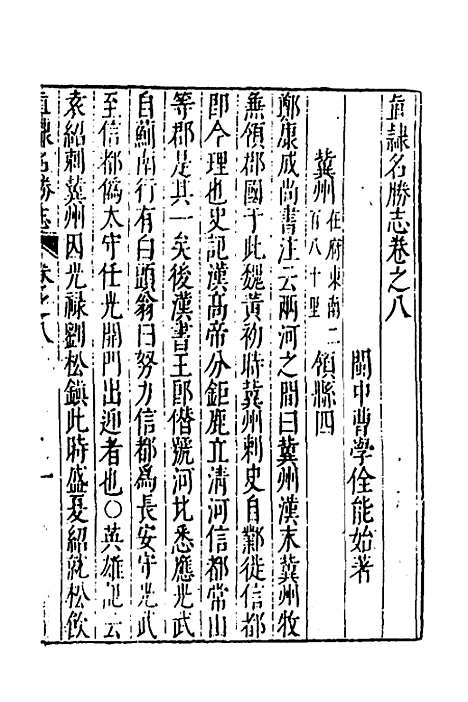 直隸名勝志卷之八
閩中曹學佺能始著
冀州在府東南二百八十里領縣四
鄭康成尚書注云兩河之間曰冀州漢末冀州牧
無領郡國于此魏黃初時冀州刺史自鄴徙信都
即今理也史記漢高帝分鉅鹿立清河信都常山
等郡是其一矣後漢書王郎僭號河北悉應光武
自薊南行有白頭翁曰努力信都爲長安守光武
至信都偽太守任光開門出迎者也〇英雄記云
袁紹刺冀州因光祿劉松鎮此時盛夏紹就松飲
直隸名勝志 卷之八 一